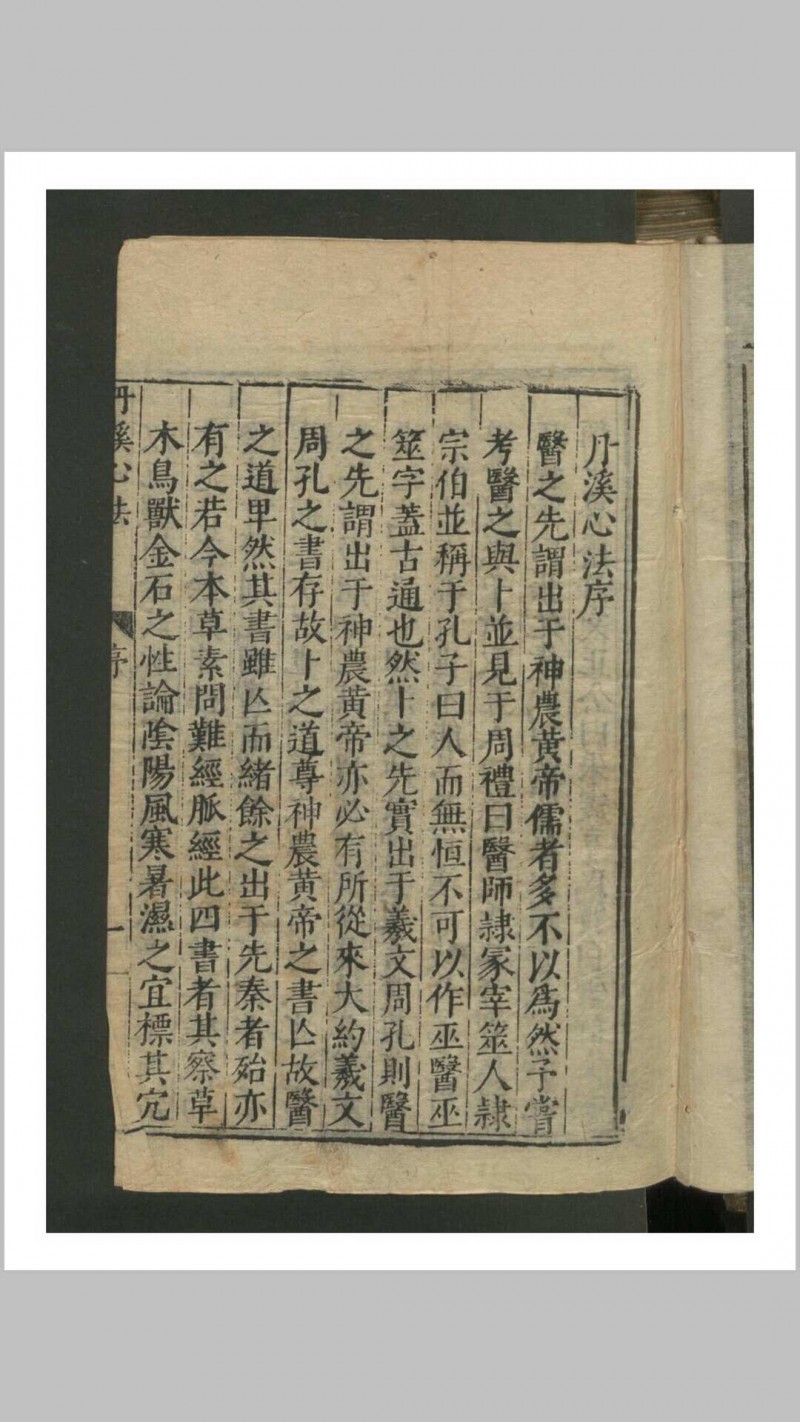 丹溪心法序
醫之先謂出于神農黃帝儒者多不以爲然予嘗
考醫之與卜並見于周禮曰醫師隷冢宰筮人隷
宗伯並稱于孔子曰人而無恒不可以作巫醫巫
筮字蓋古通也然卜之先實出于羲文周孔則醫
之先謂出于神農黃帝亦必有所從來大約羲文
周孔之書存故卜之道尊神農黃帝之書亾故醫
之道卑然其書雖亾而緒餘之出于先秦者殆亦
有之若今本草素問難經脈經此四書者其察草
木鳥獸金石之性論陰陽風寒暑濕之宜標其穴
丹溪心法
序
一